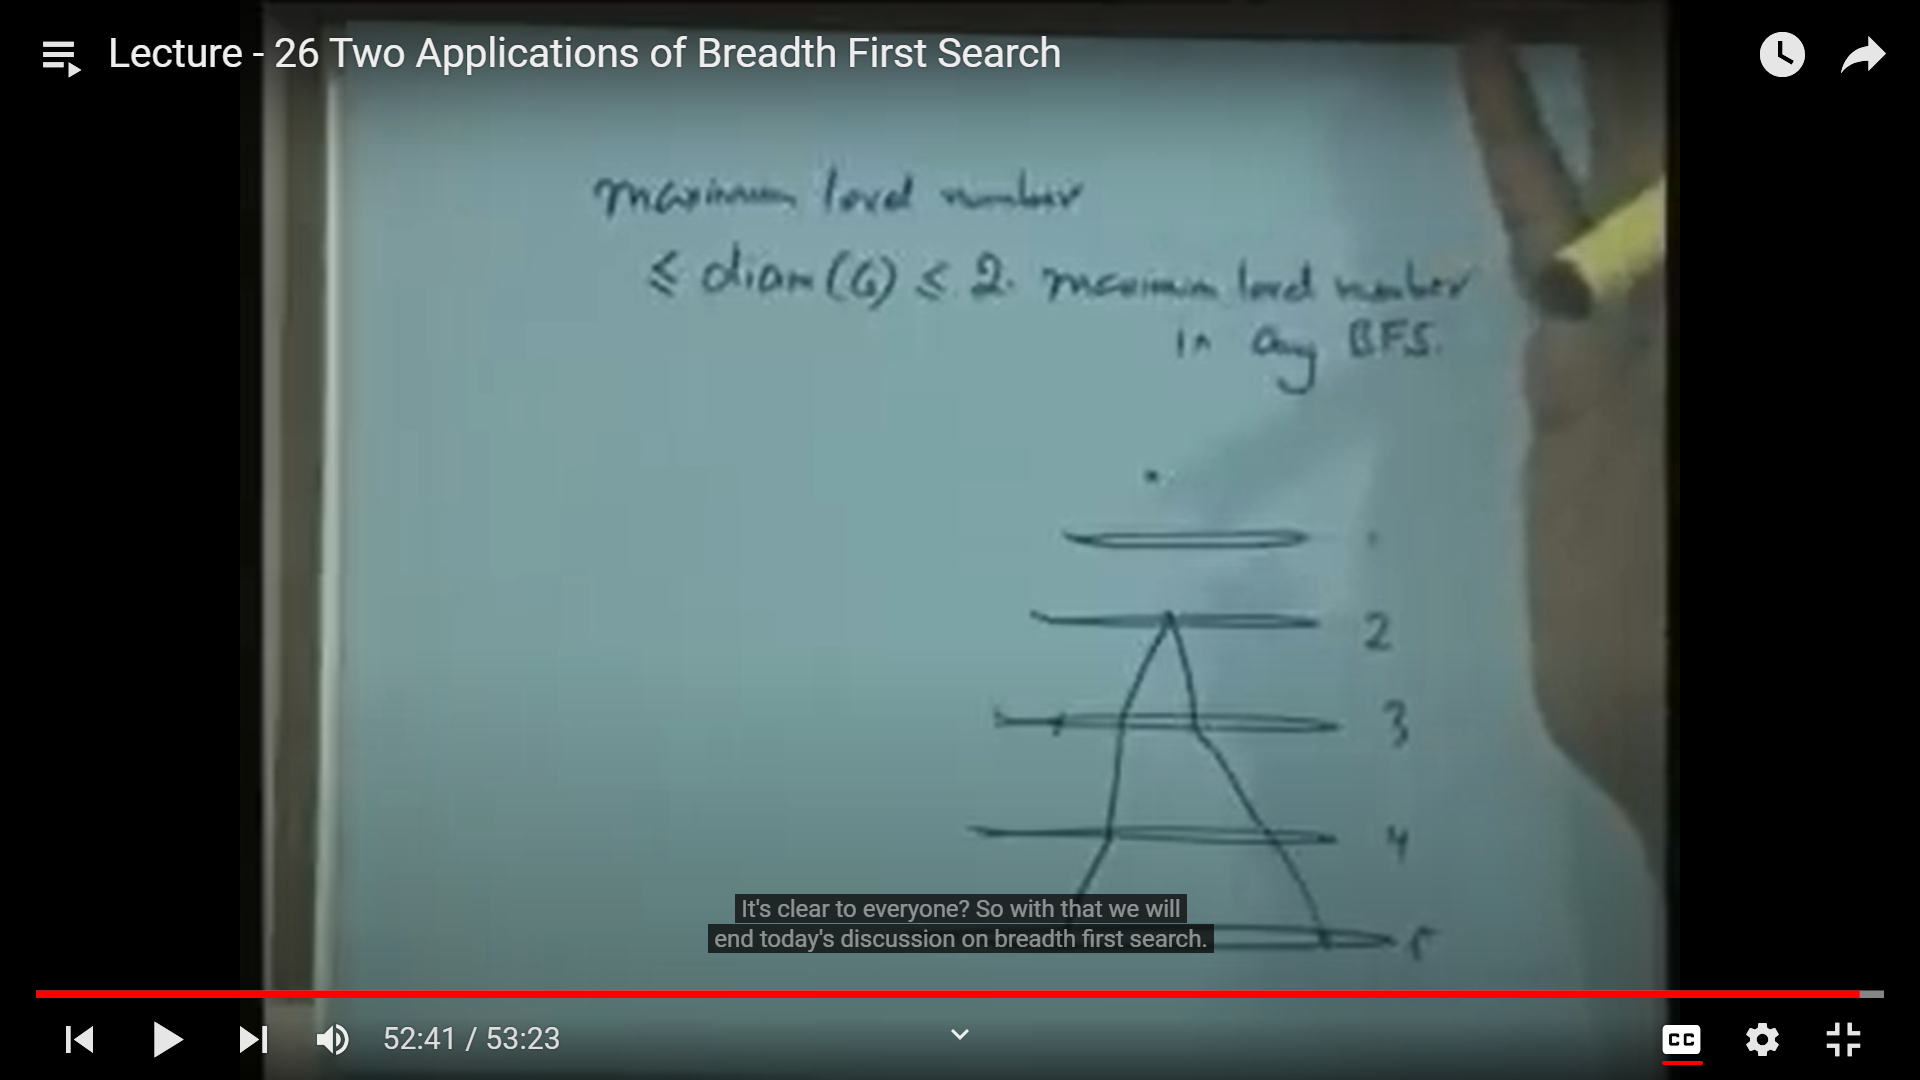 Lecture - 26 Two Applications of Breadth First Search
maximum level number
≤ diam(G) ≤ 2. maximum level number
in any BFS.
1
2
3
4
5
It's clear to everyone? So with that we will
end today's discussion on breadth first search.
52:41 / 53:23
CC